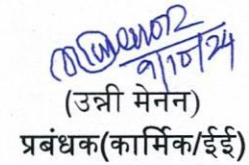 9/10/24
(उन्नी मेनन)
प्रबंधक(कार्मिक/ईई)